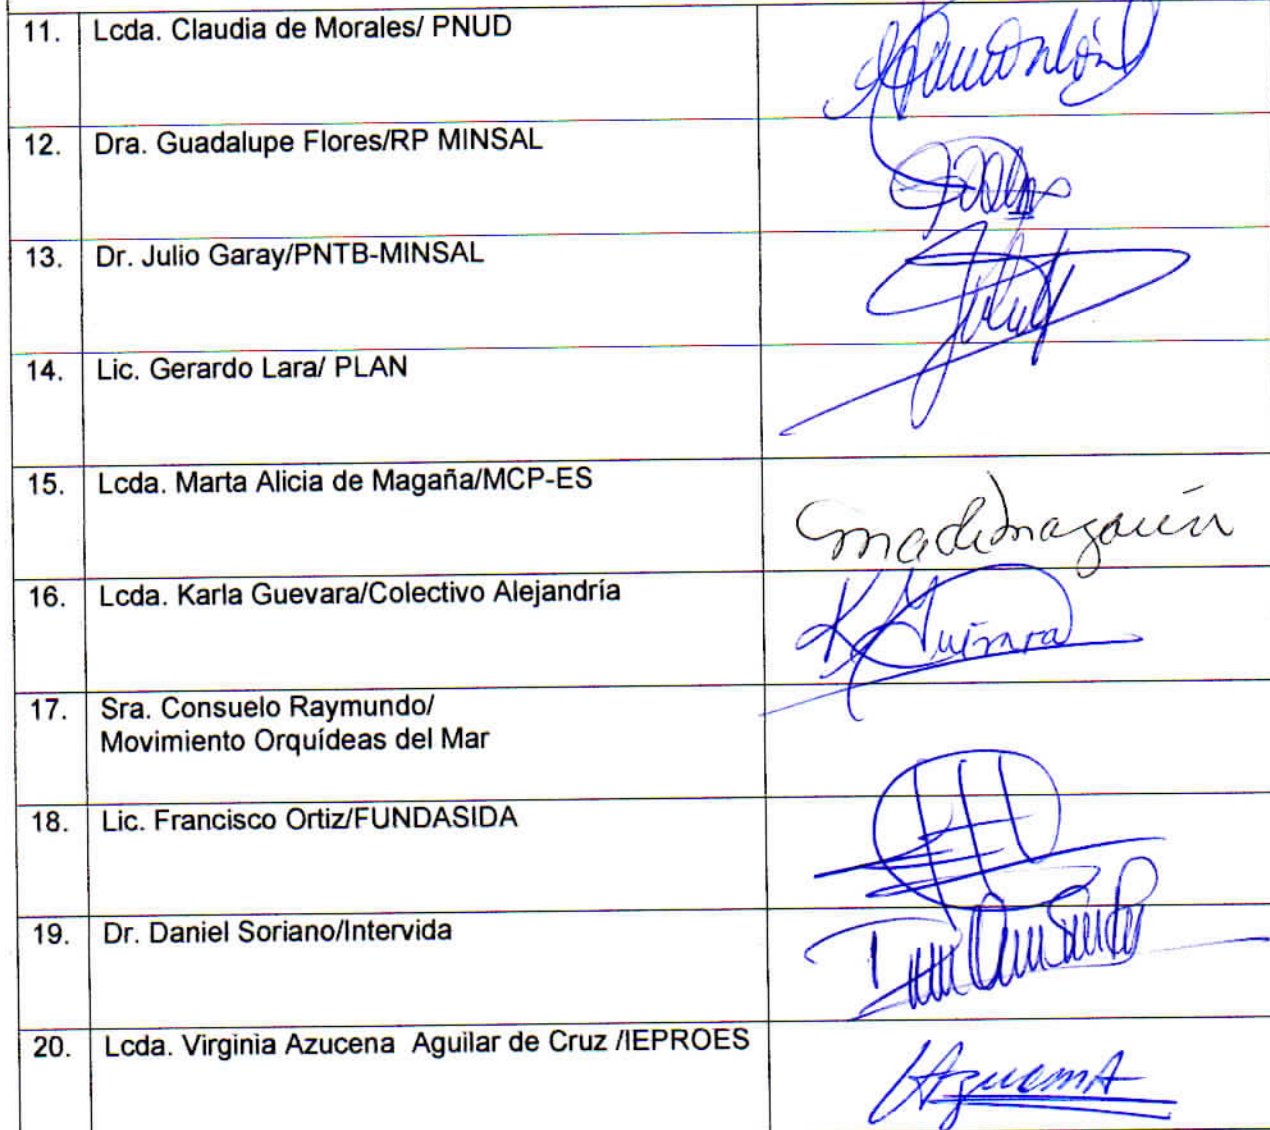 11. Lcda. Claudia de Morales/ PNUD
12. Dra. Guadalupe Flores/RP MINSAL
13. Dr. Julio Garay/PNTB-MINSAL
14. Lic. Gerardo Lara/ PLAN
15. Lcda. Marta Alicia de Magaña/MCP-ES
16. Lcda. Karla Guevara/Colectivo Alejandría
17. Sra. Consuelo Raymundo/
Movimiento Orquídeas del Mar
18. Lic. Francisco Ortiz/FUNDASIDA
19. Dr. Daniel Soriano/Intervida
20. Lcda. Virginia Azucena Aguilar de Cruz /IEPROES